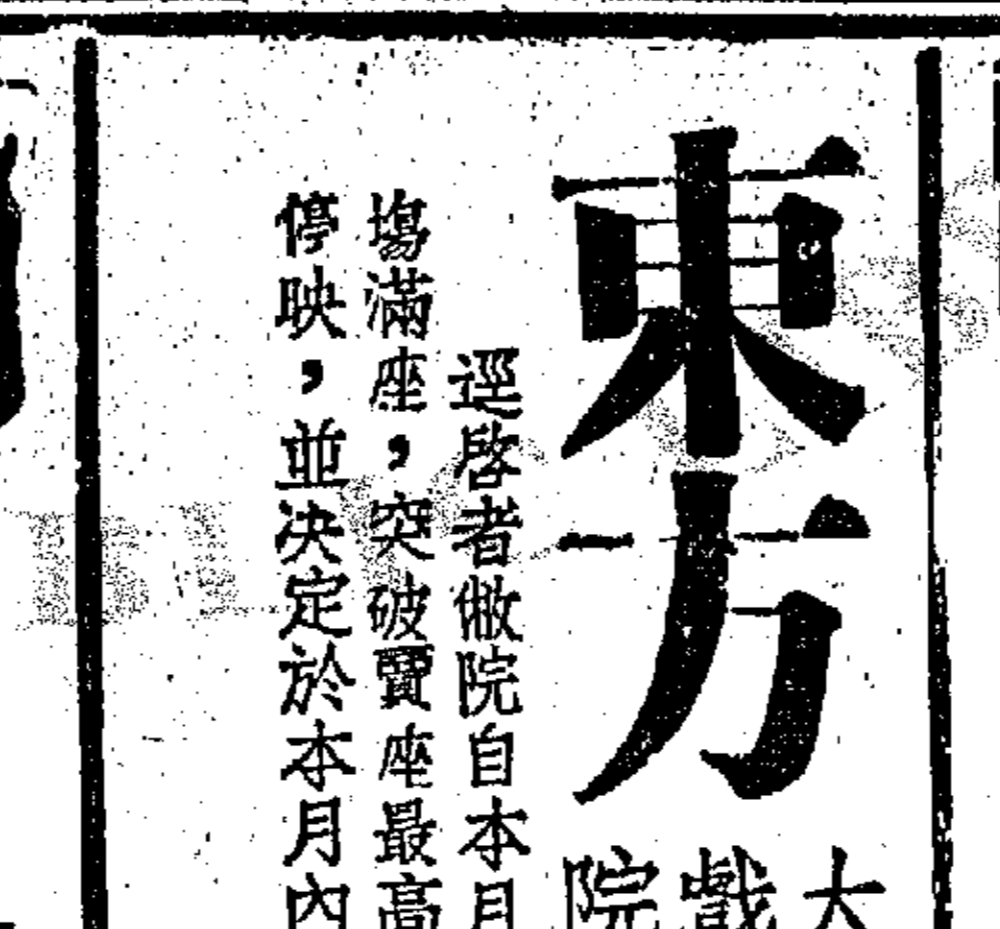 東方
大戲院
逕啓者敝院自本月
塲滿座，突破賣座最高
停映，並決定於本月內